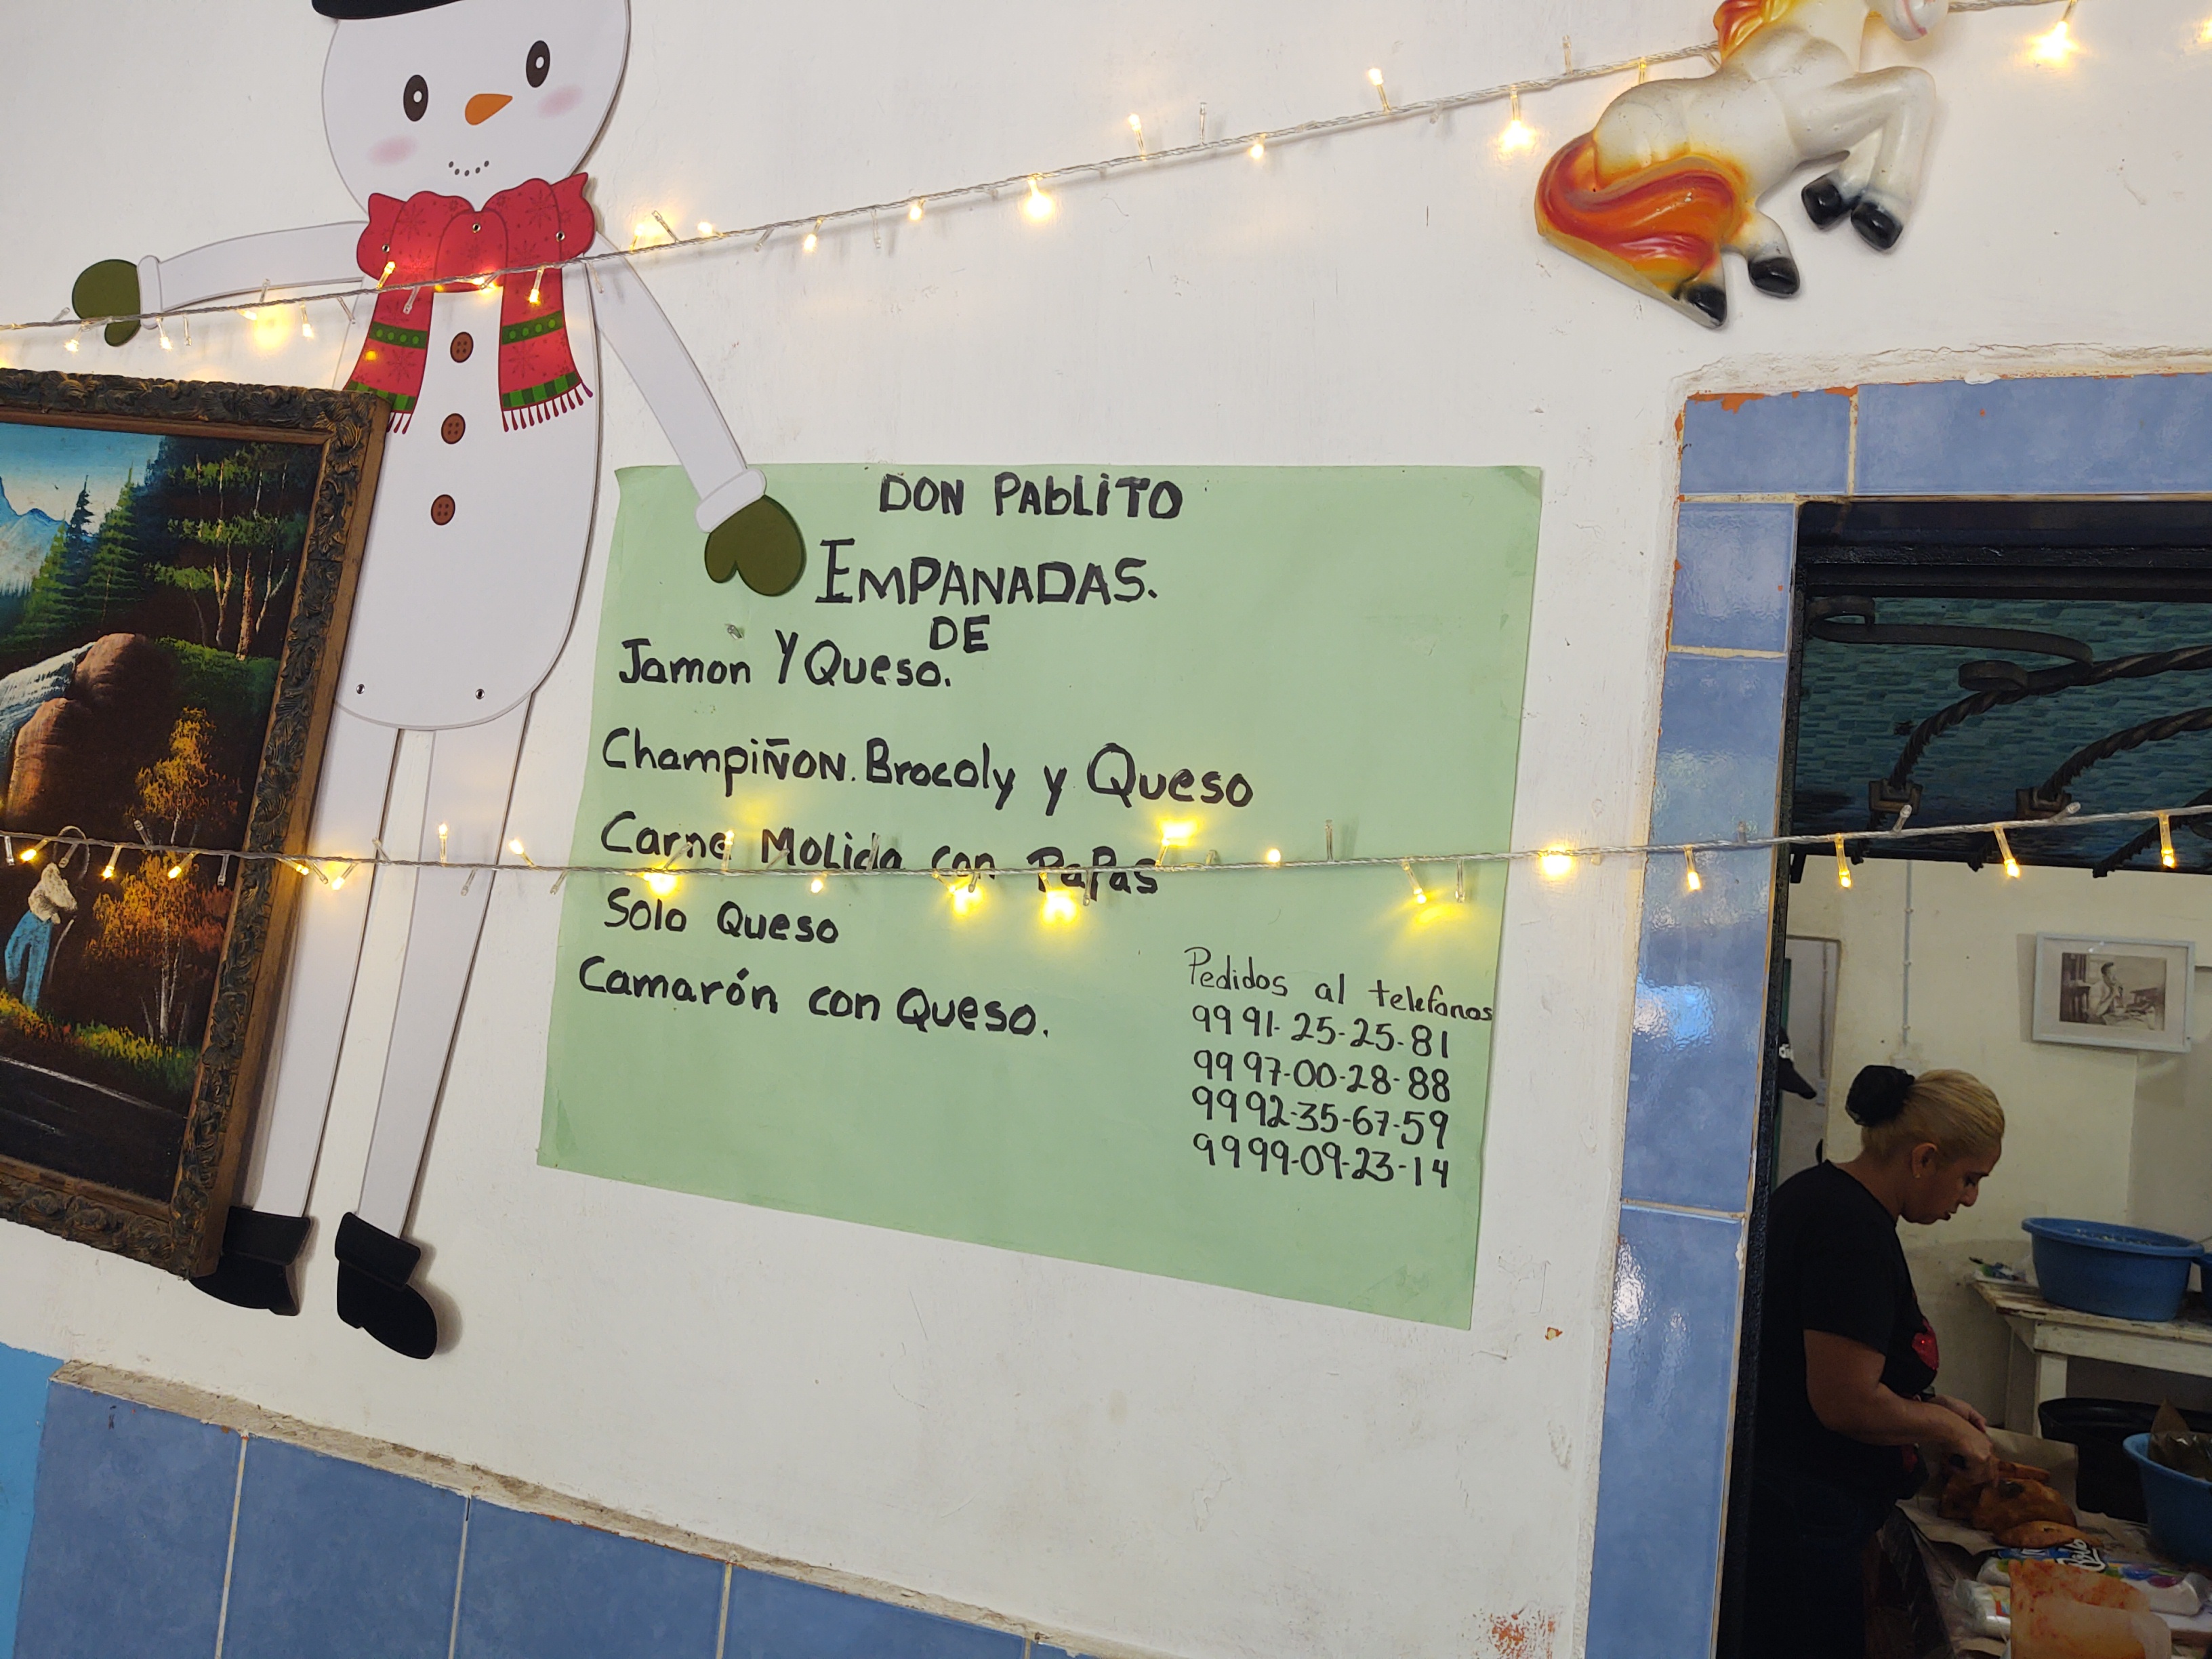 DON PABLITO
EMPANADAS.
DE
Jamon Y Queso.
ChampiÑON. Brocoly y Queso
Carne Molida con PaPas
Solo Queso
Camarón con Queso.
Pedidos al telefonos
99 91-25-25-81
99 97-00-28-88
99 92-35-67-59
9999-09-23-14